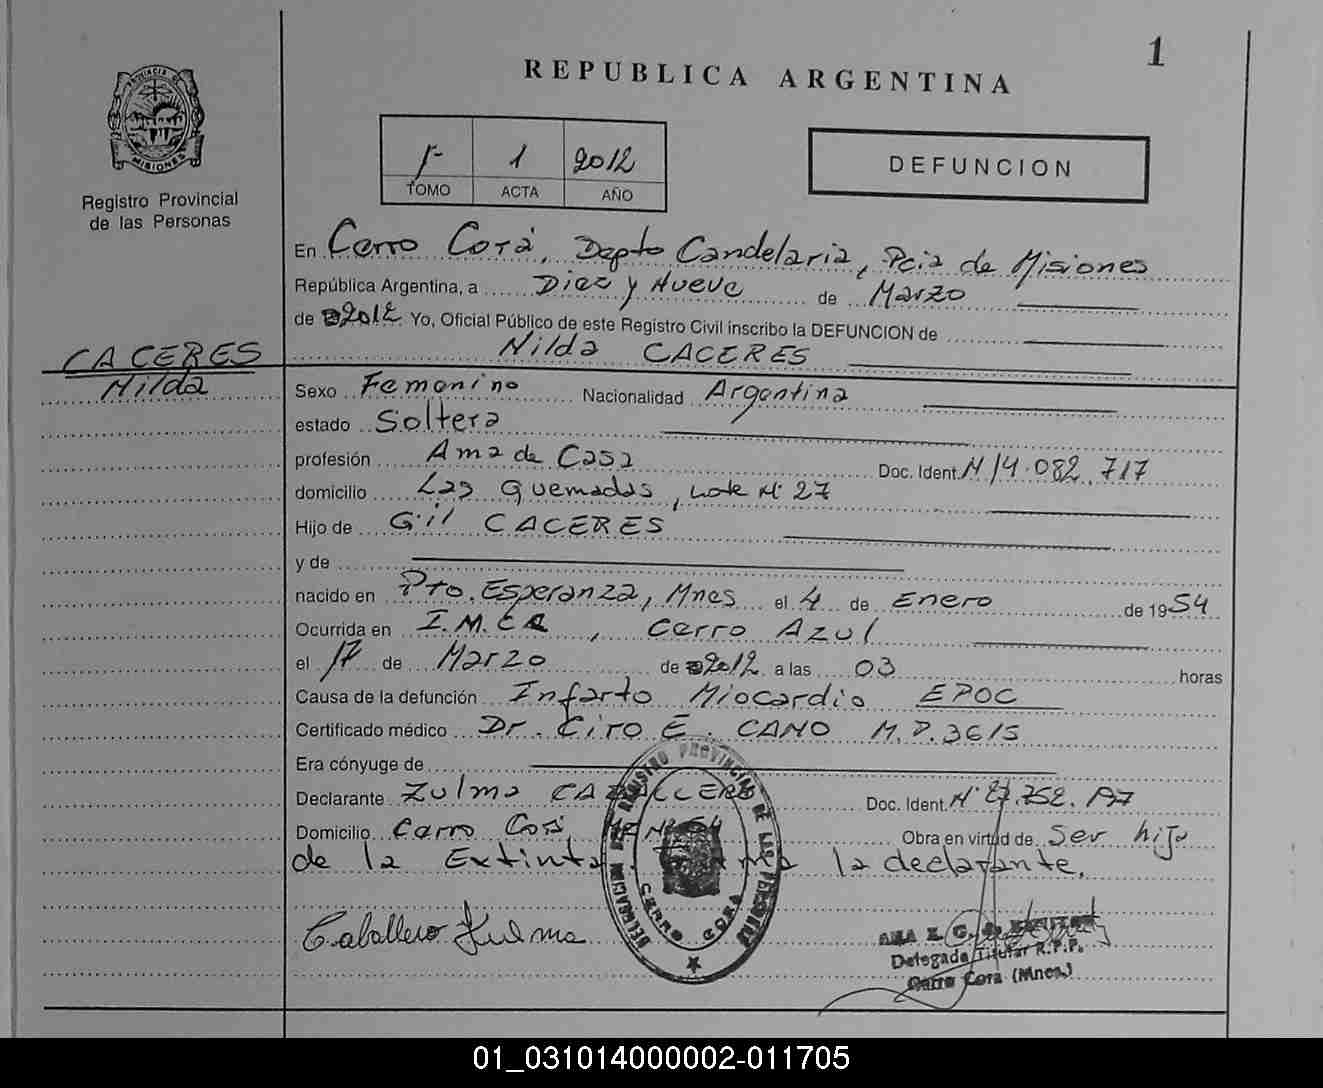 1
REPUBLICA ARGENTINA
PROVINCIA DE
MISIONES
Registro Provincial
de las Personas
1 2012
TOMO ACTA AÑO
DEFUNCION
En Cerro Corá, Depto Candelaria, Pcia de Misiones
República Argentina, a Diez y Nueve de Marzo
de 2012 Yo, Oficial Público de este Registro Civil inscribo la DEFUNCION de
CACERES
Nilda CACERES
Nilda
Sexo Femenino Nacionalidad Argentina
estado Soltera
profesión Ama de Casa Doc. Ident. N 14.082.717
domicilio Las Quemadas, Lote Nº 27
Hijo de Gil CACERES
y de
nacido en Pto. Esperanza, Mnes el 4 de Enero de 1954
Ocurrida en , Cerro Azul
el 17 de Marzo de 2012 a las 03 horas
Causa de la defunción Infarto Miocardio EPOC
Certificado médico Dr. Ciro E. CANO M.P. 3615
Era cónyuge de
Declarante Zulma CABALLERO Doc. Ident. Nº
Domicilio Cerro Corá Obra en virtud de Ser hija
de la Extinta. la declarante.
Caballero Zulma
DELEGACION DEL REGISTRO PROVINCIAL DE LAS PERSONAS
CERRO CORA
ANA
Delegada Titular R.P.P.
Cerro Cora (Mnes.)
01_031014000002-011705